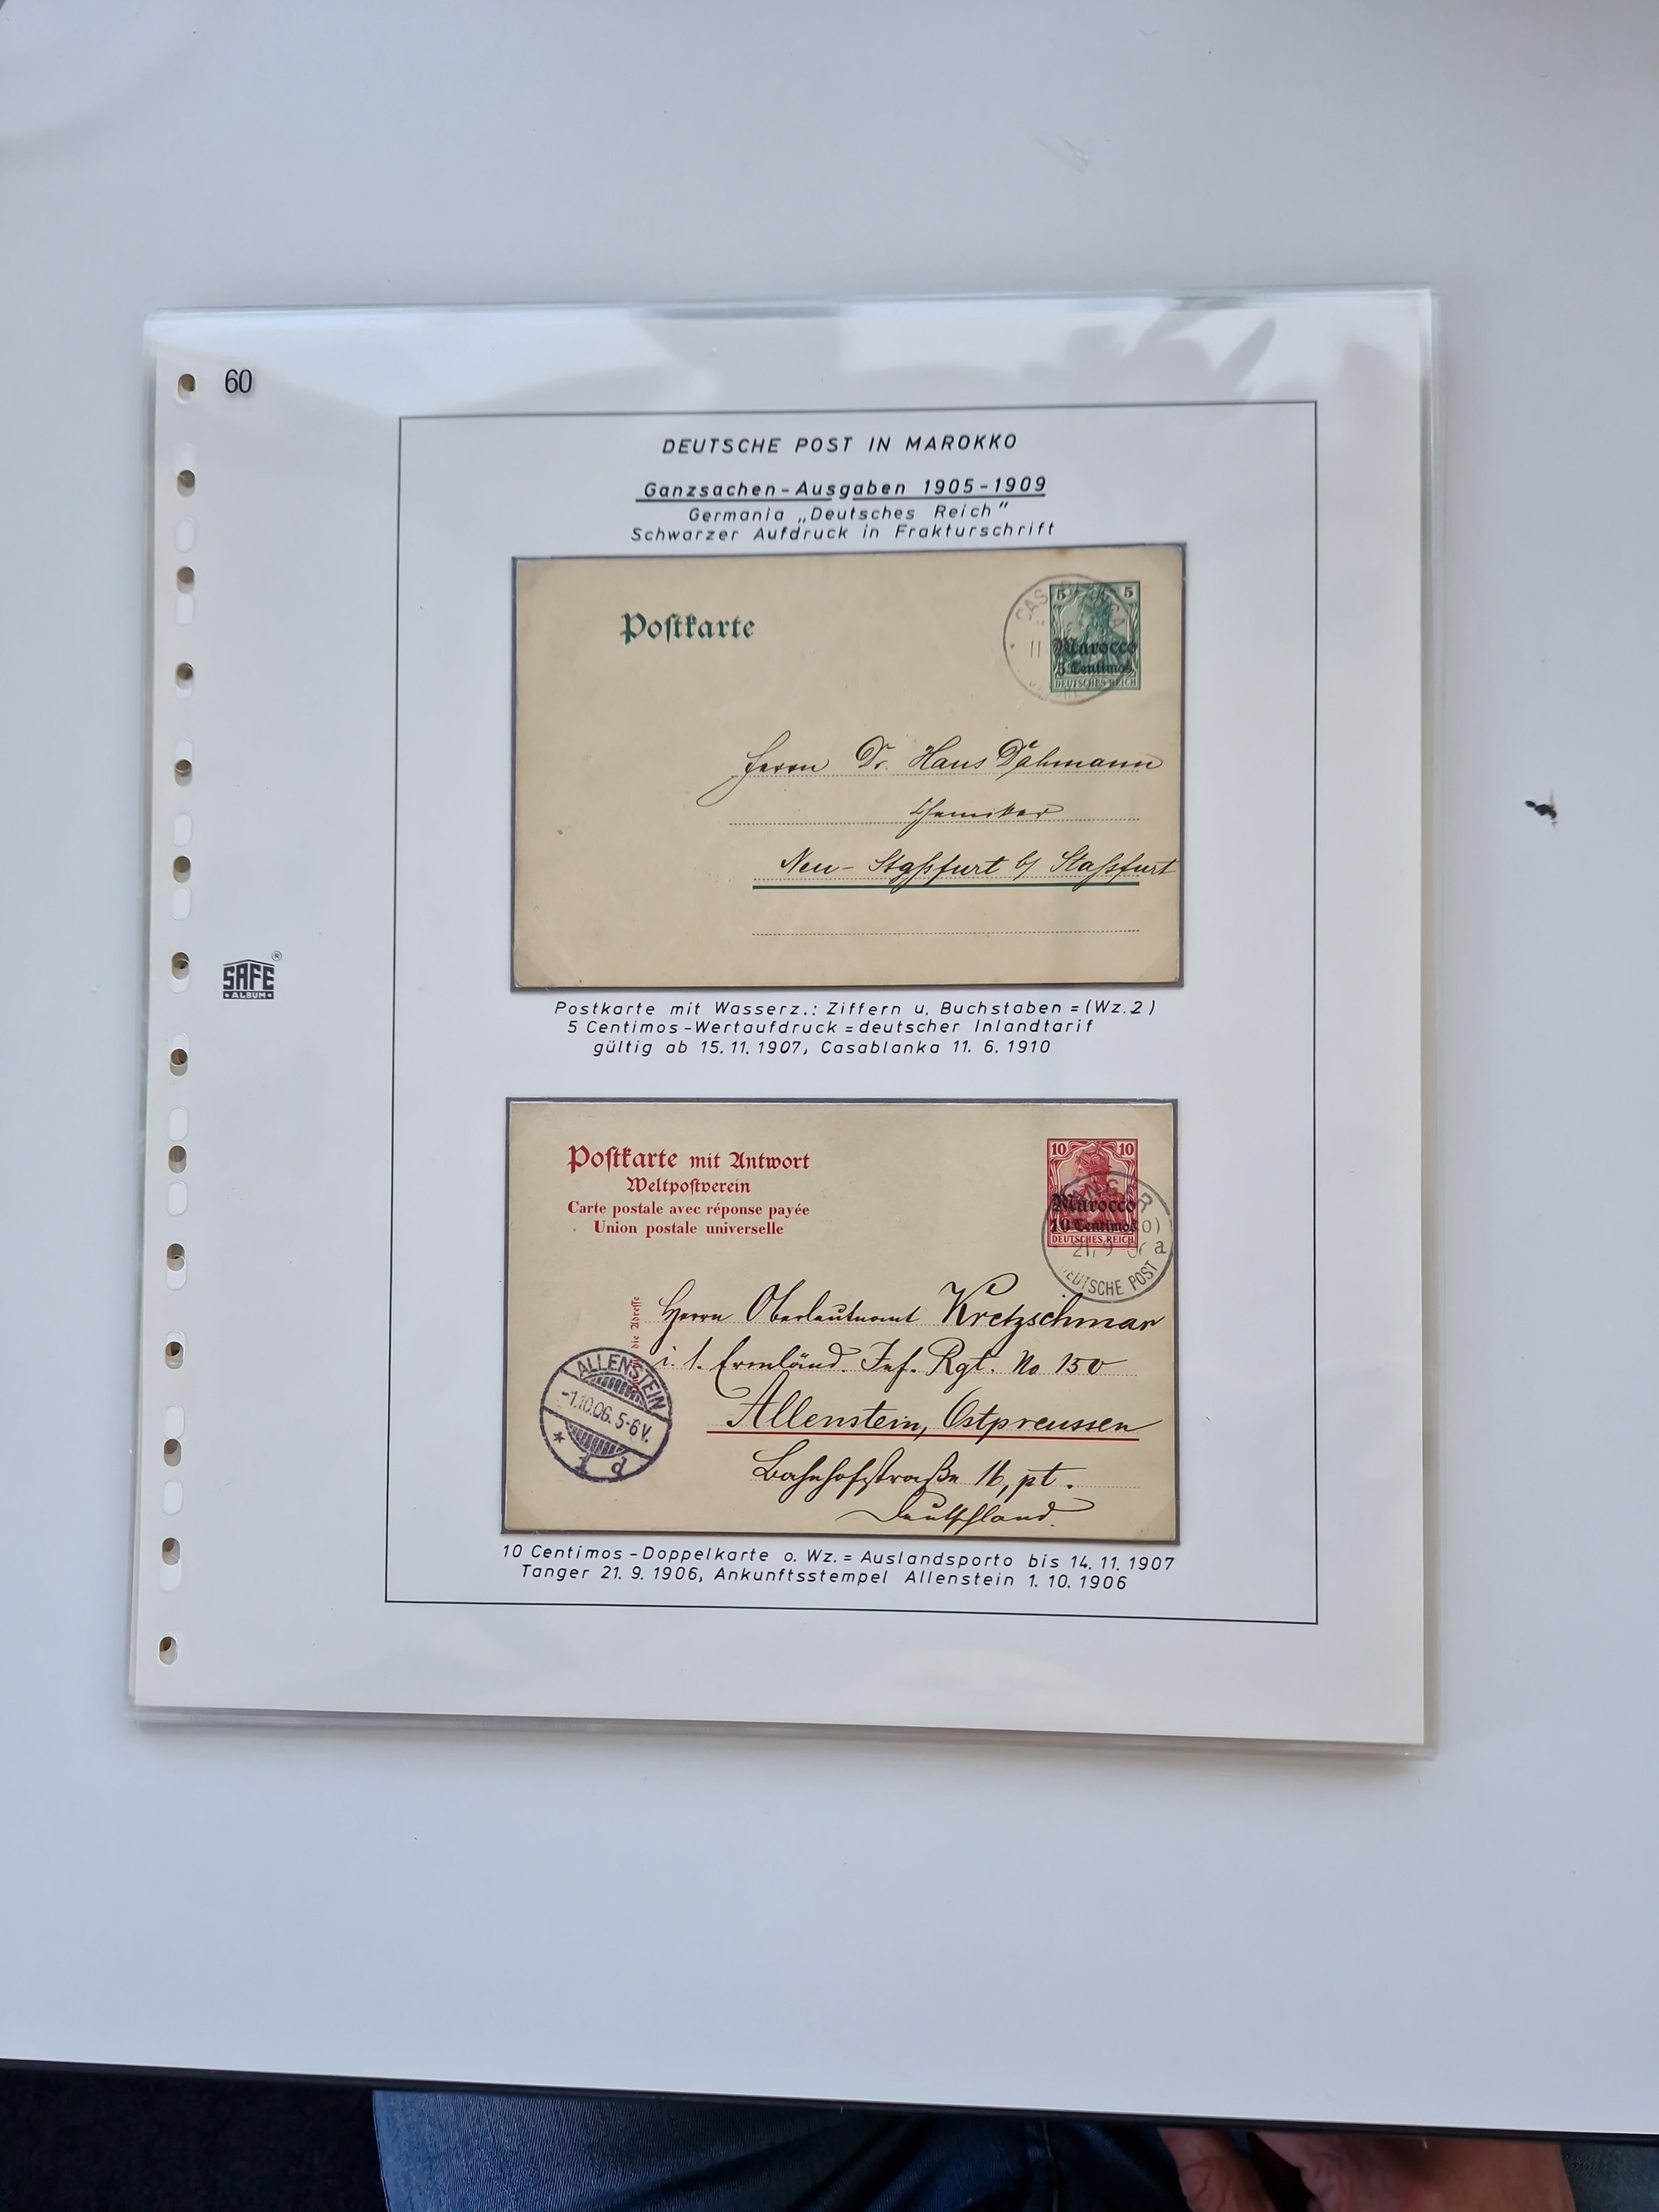 60
DEUTSCHE POST IN MAROKKO
Ganzsachen-Ausgaben 1905-1909
Germania „Deutsches Reich"
Schwarzer Aufdruck in Frakturschrift
Postkarte
5 5
Marocco
5 Centimos
DEUTSCHES REICH
CASABLANCA
11
Herrn Dr. Hans Dähmann
Chemiker
Neu-Staßfurt b/ Staßfurt
SAFE ®
ALBUM
Postkarte mit Wasserz.: Ziffern u. Buchstaben = (Wz.2)
5 Centimos-Wertaufdruck = deutscher Inlandtarif
gültig ab 15.11.1907, Casablanka 11. 6. 1910
Postkarte mit Antwort
Weltpostverein
Carte postale avec réponse payée
Union postale universelle
10 10
Marocco
10 Centimos
DEUTSCHES REICH
a
DEUTSCHE POST
die Adresse
Herrn Oberleutnant Kretzschmar
i. 1. Ermländ. Inf. Rgt. No 150
Allenstein, Ostpreussen
Bahnhofstraße 16, pt.
Deutschland.
ALLENSTEIN
-1.10.06. 5-6V.
* 1 d
10 Centimos-Doppelkarte o. Wz. = Auslandsporto bis 14. 11. 1907
Tanger 21. 9. 1906, Ankunftsstempel Allenstein 1. 10. 1906